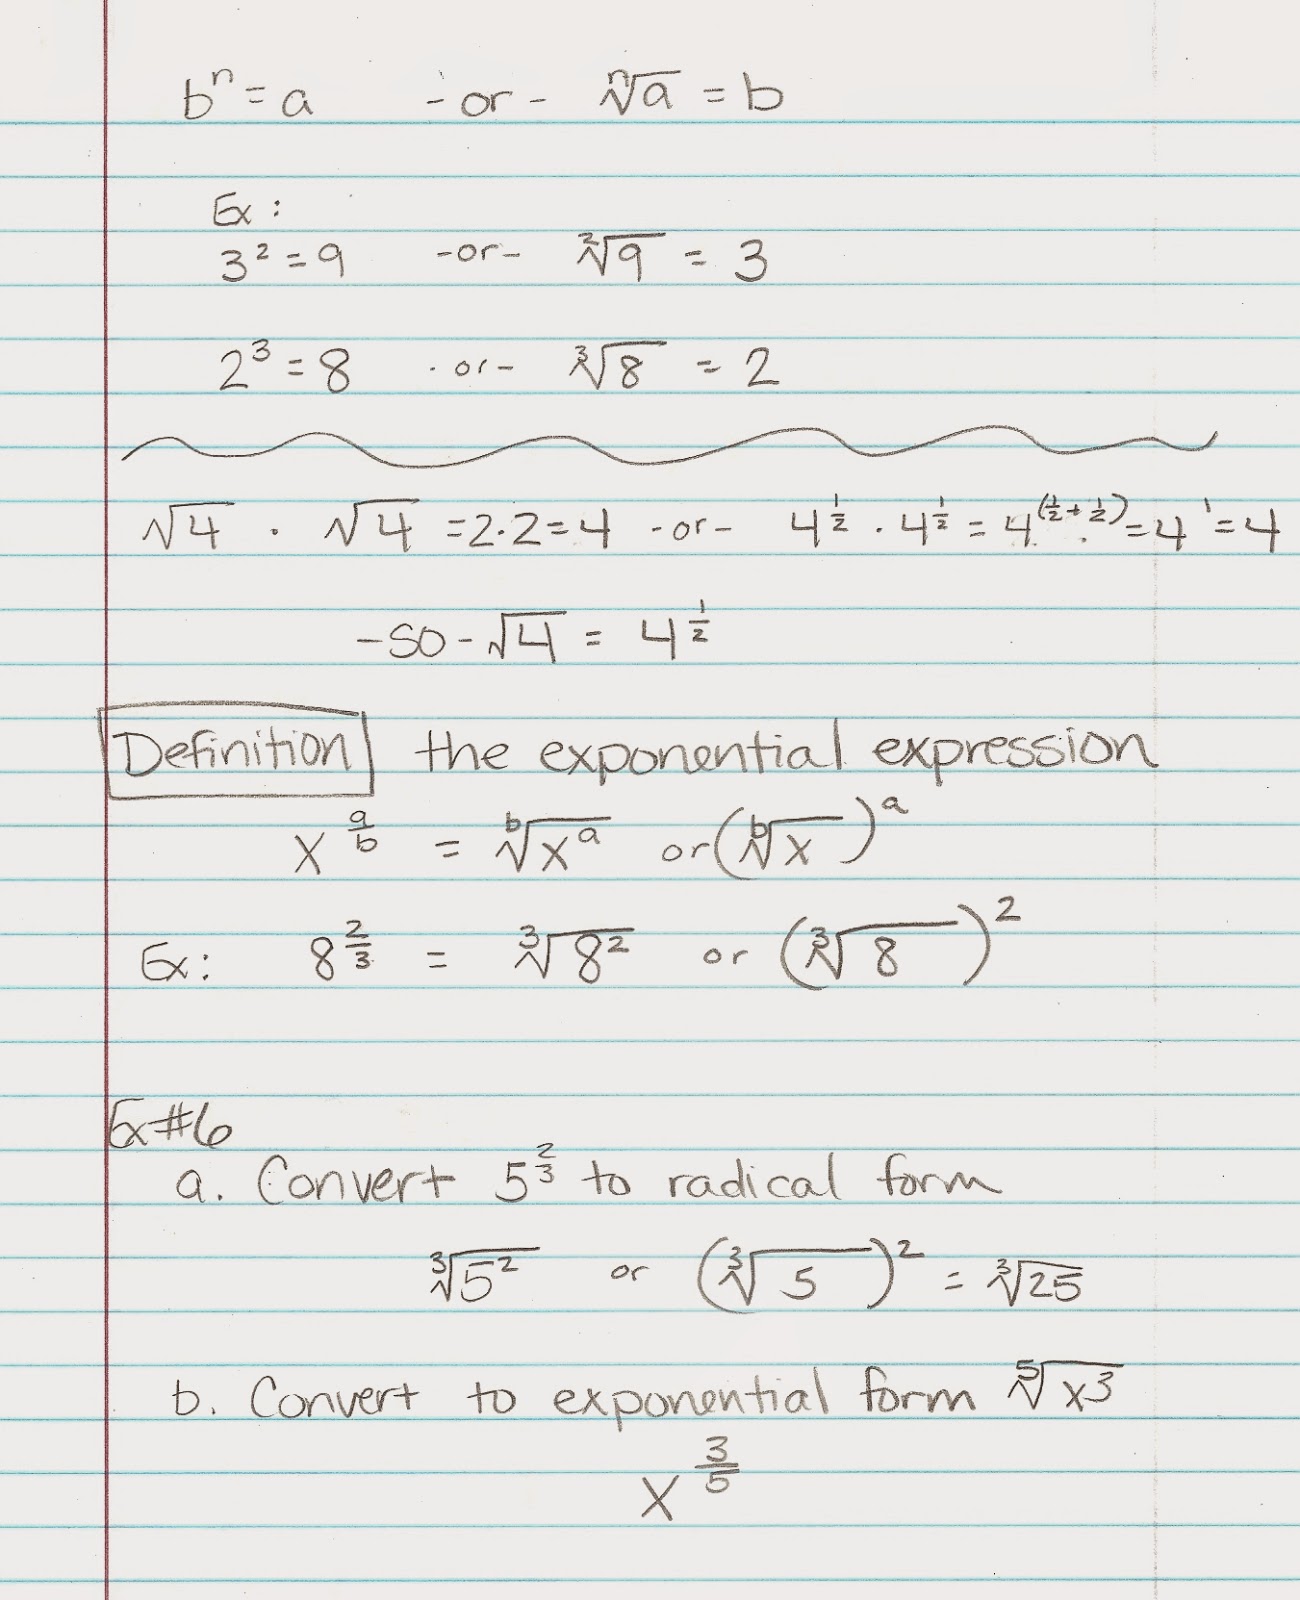 bⁿ = a - or - ⁿ√a = b
Ex:
3² = 9 -or- ²√9 = 3
2³ = 8 -or- ³√8 = 2
√4 · √4 = 2·2 = 4 -or- 4^(1/2) · 4^(1/2) = 4^(1/2 + 1/2) = 4¹ = 4
-so- √4 = 4^(1/2)
Definition the exponential expression
x^(a/b) = ᵇ√(xᵃ) or (ᵇ√x)ᵃ
Ex: 8^(2/3) = ³√(8²) or (³√8)²
Ex#6
a. Convert 5^(2/3) to radical form
³√(5²) or (³√5)² = ³√25
b. Convert to exponential form ⁵√(x³)
x^(3/5)